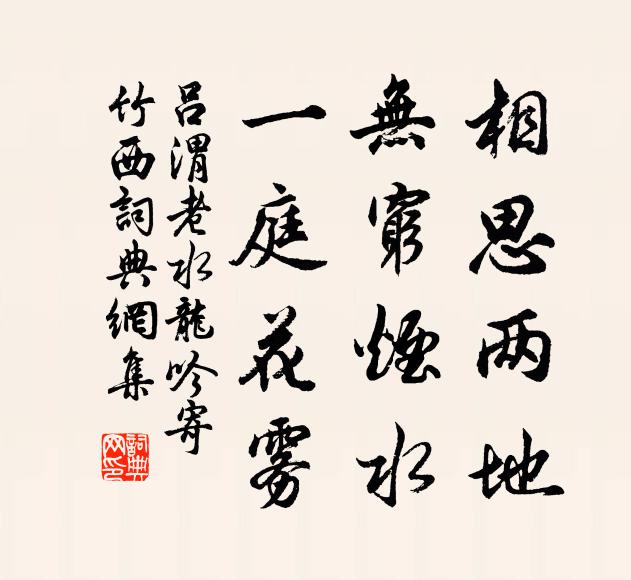 相思两地
無窮煙水
一庭花雾
吕渭老水龍吟寄
竹西詞典網集
詞典网印